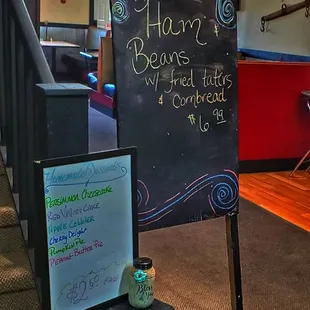 Ham
&
Beans
w/ fried taters
& Cornbread
$6.99
Homemade Desserts
Persimmon Cheesecake
Red Velvet Cake
Apple Cobbler
Cherry Delight
Pumpkin Pie
Peanut Butter Pie